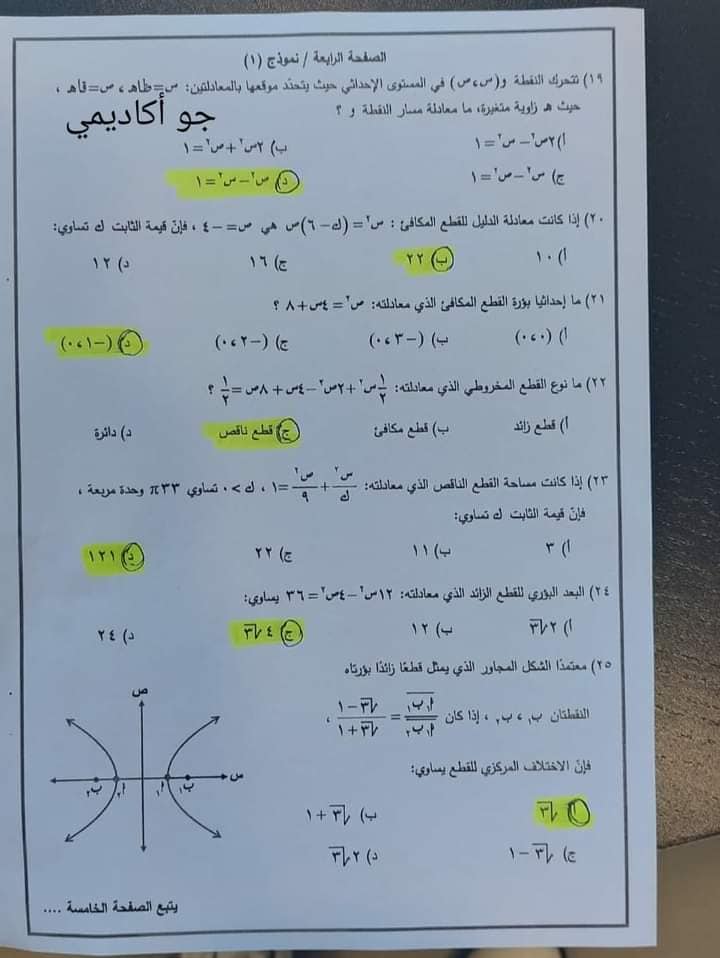 الصفحة الرابعة / نموذج (١)
١٩) تتحرك النقطة و(س،ص) في المستوى الإحداثي حيث يتحدّد موقعها بالمعادلتين: س=ظاهـ ، ص=قاهـ ،
حيث هـ زاوية متغيرة، ما معادلة مسار النقطة و ؟
جو أكاديمي
أ) ٢ص٢ − س٢ = ١ ب) ٢س٢ + ص٢ = ١
ج) س٢ − ص٢ = ١ د) ص٢ − س٢ = ١
٢٠) إذا كانت معادلة الدليل للقطع المكافئ : س٢ = (ك − ٦)ص هي ص = −٤ ، فإنّ قيمة الثابت ك تساوي:
أ) ١٠ ب) ٢٢ ج) ١٦ د) ١٢
٢١) ما إحداثيا بؤرة القطع المكافئ الذي معادلته: ص٢ = ٤س + ٨ ؟
أ) (٠،٠) ب) (−٣،٠) ج) (−٢،٠) د) (−١،٠)
٢٢) ما نوع القطع المخروطي الذي معادلته: ١/٢ س٢ + ٢ص٢ − ٤س + ٨ص = ١/٢ ؟
أ) قطع زائد ب) قطع مكافئ ج) قطع ناقص د) دائرة
٢٣) إذا كانت مساحة القطع الناقص الذي معادلته: س٢/ك + ص٢/٩ = ١ ، ك > ٠ تساوي ٣٣π وحدة مربعة ،
فإنّ قيمة الثابت ك تساوي:
أ) ٣ ب) ١١ ج) ٢٢ د) ١٢١
٢٤) البعد البؤري للقطع الزائد الذي معادلته: ١٢س٢ − ٤ص٢ = ٣٦ يساوي:
أ) ٢√٣ ب) ١٢ ج) ٤√٣ د) ٢٤
٢٥) معتمدًا الشكل المجاور الذي يمثل قطعًا زائدًا بؤرتاه
النقطتان ب١ ، ب٢ ، إذا كان أ١ب١/أ١ب٢ = (√٣ − ١)/(√٣ + ١) ،
فإنّ الاختلاف المركزي للقطع يساوي:
أ) √٣ ب) √٣ + ١
ج) √٣ − ١ د) ٢√٣
ص
س
ب١ أ١ أ٢ ب٢
يتبع الصفحة الخامسة ....